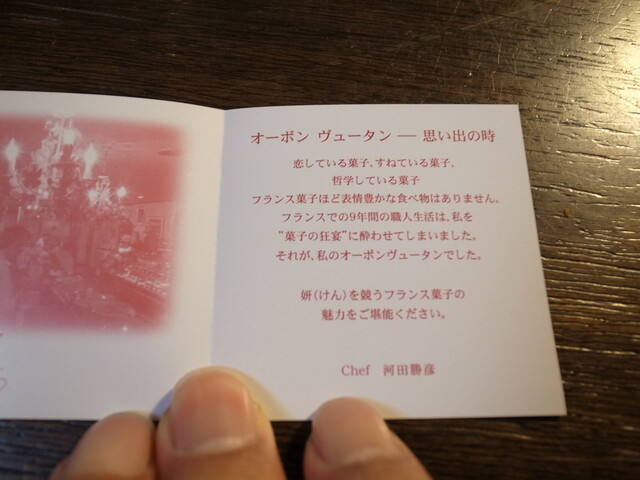 オーボン ヴュータン ― 思い出の時
恋している菓子、すねている菓子、
哲学している菓子
フランス菓子ほど表情豊かな食べ物はありません。
フランスでの9年間の職人生活は、私を
“菓子の狂宴”に酔わせてしまいました。
それが、私のオーボンヴュータンでした。
妍（けん）を競うフランス菓子の
魅力をご堪能ください。
Chef 河田勝彦